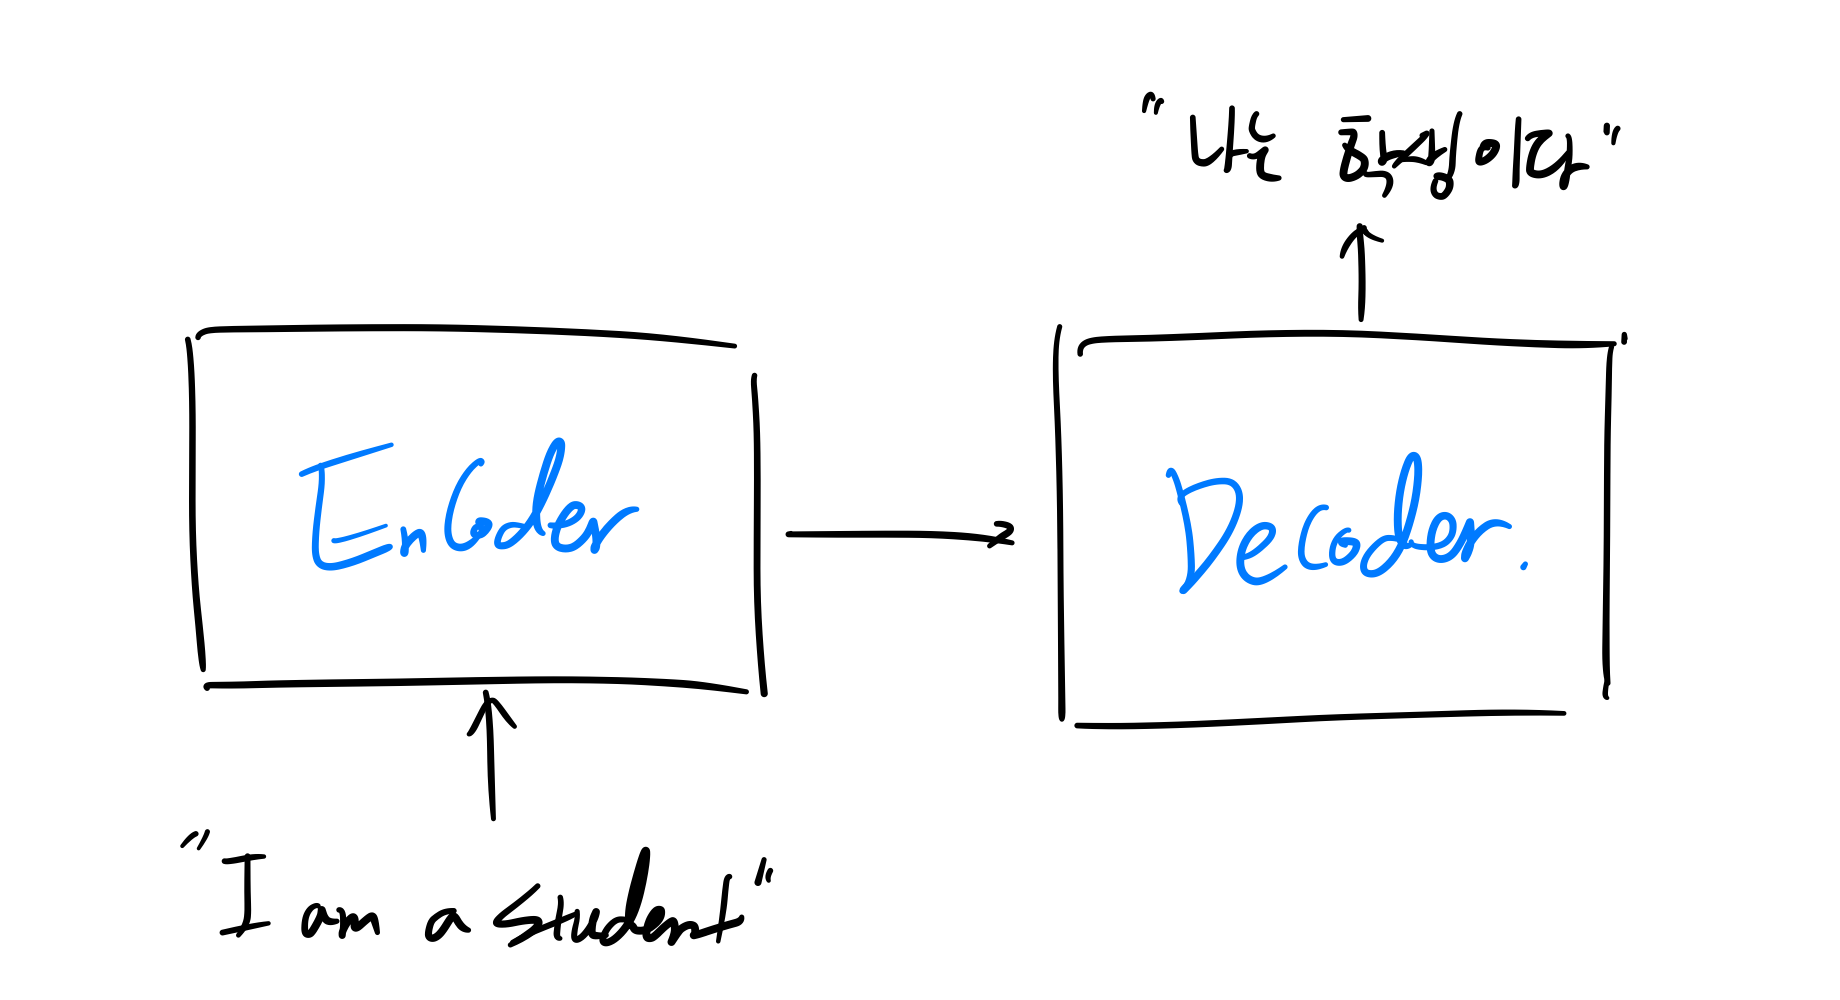 "나는 학생이다"
Encoder
Decoder.
"I am a student"